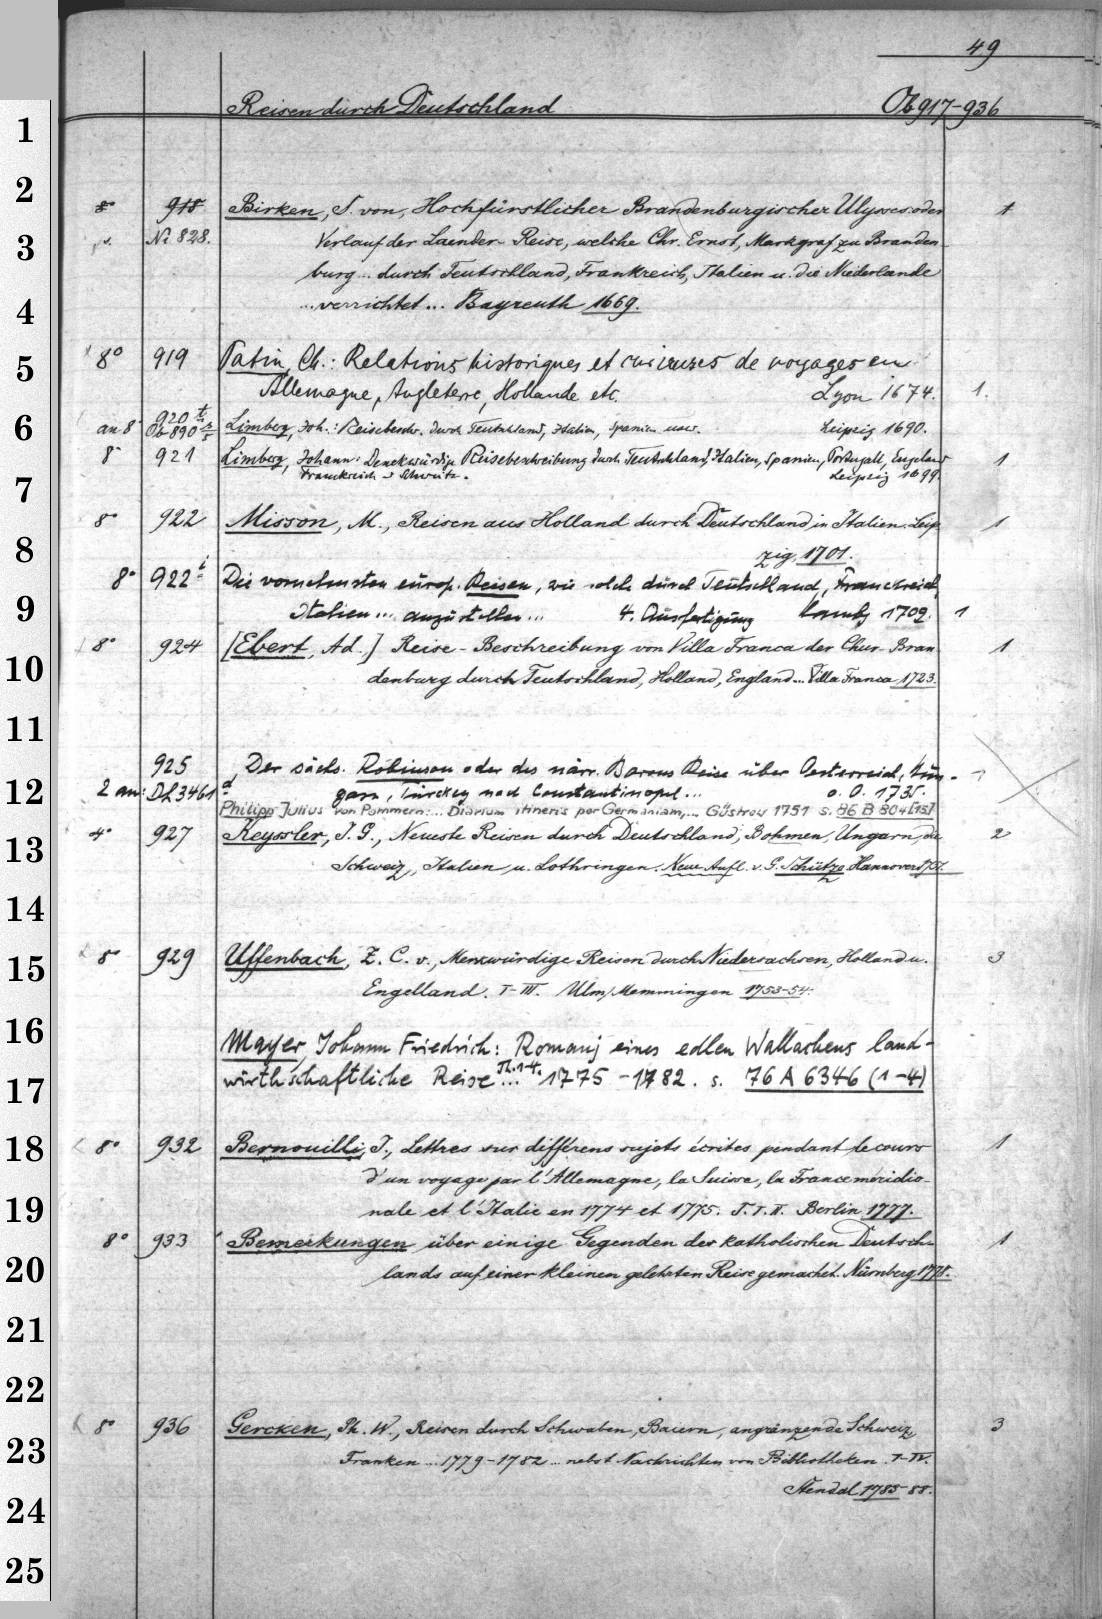 49
Reisen durch Deutschland Ob 917-936
1
2
8° 918 Birken, S. von, Hochfürstlicher Brandenburgischer Ulysses oder 1
3 s. Ni 828. Verlauf der Laender-Reise, welche Chr. Ernst, Markgraf zu Branden-
burg... durch Teutschland, Frankreich, Italien u. die Niederlande
4 ...verrichtet... Bayreuth 1669.
5 8° 919 Patin, Ch.: Relations historiques et curieuses de voyages en
Allemagne, Angleterre, Hollande etc. Lyon 1674. 1.
920
6 an 8° Ob 890 Limberg, Joh.: Reisebeschr. durch Teutschland, Italien, Spanien usw. Leipzig 1690.
8° 921 Limberg, Johann: Denckwürdige Reisebeschreibung durch Teutschland, Italien, Spanien, Portugall, Engeland 1
7 Franckreich u Schweitz. Leipzig 1699.
8° 922 Misson, M., Reisen aus Holland durch Deutschland in Italien. Leip- 1
8 zig 1701.
8° 922 Die vornehmsten europ. Reisen, wie solche durch Teutschland, Franckreich,
9 Italien ... anzustellen ... 4. Ausfertigung Hamby 1709. 1
8° 924 [Ebert, Ad.] Reise-Beschreibung von Villa Franca der Chur-Bran- 1
10 denburg durch Teutschland, Holland, England... Villa Franca 1723.
11
925 Der sächs. Robinson oder des närr. Barons Reise über Oesterreich, Hun- 1
12 2 an: Dk 3461 garn, Türckey nach Constantinopel... o. O. 1735.
Philipp Julius von Pommern:... Diarium itineris per Germaniam,... Güstrow 1751 s. 86 B 804[15]
4° 927 Keyssler, J. G., Neueste Reisen durch Deutschland, Bohmen, Ungarn, die 2
13 Schweiz, Italien u. Lothringen. Neue Aufl. v. G. Schütze Hannover 1751.
14
15 8° 929 Uffenbach, Z. C. v., Merkwürdige Reisen durch Niedersachsen, Holland u. 3
Engelland. I-III. Ulm, Memmingen 1753-54.
16 Mayer, Johann Friedrich: Romanj eines edlen Wallachens land-
17 wirthschaftliche Reise... Th. 1-4. 1775-1782. s. 76 A 6346 (1-4)
18 8° 932 Bernouilli, J., Lettres sur différens sujets écrites pendant le cours 1
d'un voyage par l'Allemagne, la Suisse, la France méridio-
19 nale et l'Italie en 1774 et 1775. T. I. II. Berlin 1777.
8° 933 Bemerkungen über einige Gegenden des katholischen Deutsch- 1
20 lands auf einer kleinen gelehrten Reise gemacht. Nürnberg 1778.
21
22
8° 936 Gercken, Ph. W., Reisen durch Schwaben, Baiern, angränzende Schweiz 3
23 Franken ... 1779-1782 ... nebst Nachrichten von Bibliotheken. I-IV.
24 Stendal 1783-88.
25